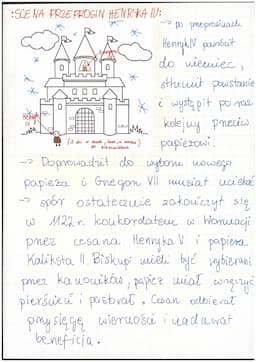 SCENA PRZEPROSIN HENRYKA IV:
→ po przeprosinach
Henryk IV powrócił
do niemiec,
stłumił powstanie
i wystąpił po raz
kolejny przeciw
papieżowi.
(3 dni w
→ Doprowadził do wyboru nowego
papieża i Gregon VII musiał uciekać
→ spór ostatecznie zakończył się
w 1122 r. konkordatem w Wormacji
przez cesarza Henryka V i papieża
Kaliksta II. Biskupi mieli być wybierani
przez kanoników, papież miał wręczyć
pierścień i pastorał. Cesarz odbierał
przysięgę wierności i nadawał
beneficja.